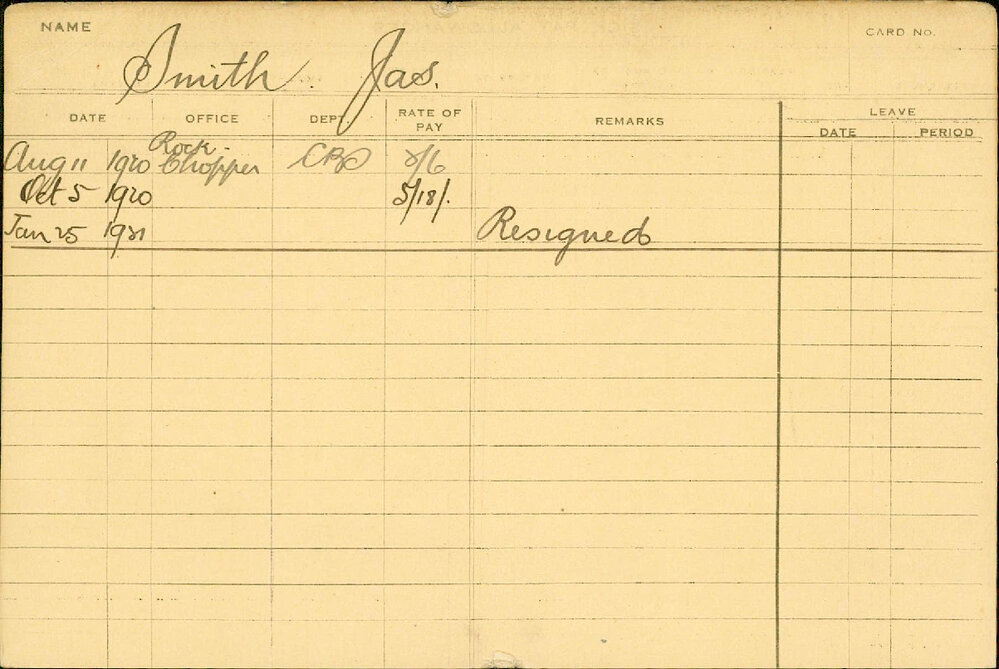 NAME
CARD No.
Smith Jas.
DATE OFFICE DEPT. RATE OF PAY REMARKS LEAVE
DATE PERIOD
Aug 11 1920 Rock Chopper CBO 2/6
Oct 5 1920 5/18/.
Jan 25 1921 Resigned